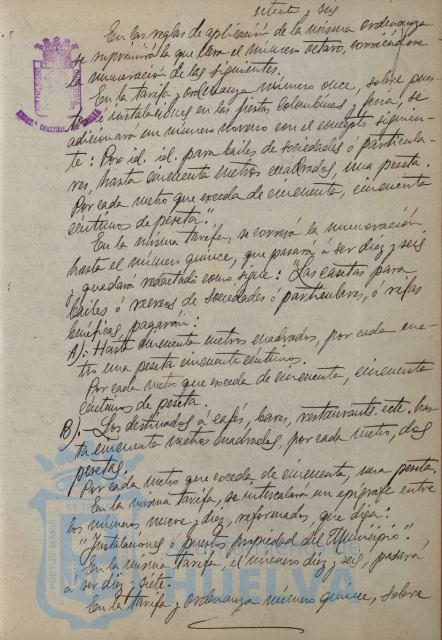 setenta y seis
En las reglas de aplicación de la misma ordenanza
se suprimirá la que lleva el número octavo, corriéndose
la numeración de las siguientes.
En la tarifa y ordenanza número once, sobre pues-
tos e instalaciones en las fiestas Colombinas y feria, se
adicionará un número noveno con el concepto siguien-
te: "Por id. id. para bailes de sociedades o particula-
res, hasta cincuenta metros cuadrados, una peseta.
Por cada metro que exceda de cincuenta, cincuenta
céntimos de peseta."
En la misma tarifa, se correrá la numeración
hasta el número quince, que pasará á ser diez y seis
y quedará redactado como sigue: "Las casetas para
bailes ó recreos de sociedades ó particulares, ó rifas
benéficas, pagarán:
A).- Hasta cincuenta metros cuadrados, por cada me-
tro una peseta cincuenta céntimos.
Por cada metro que exceda de cincuenta, cincuenta
céntimos de peseta.
B).- Los destinados á cafés, bares, restaurants, etc, has-
ta cincuenta metros cuadrados, por cada metro, dos
pesetas.
Por cada metro que exceda de cincuenta, una peseta.
En la misma tarifa, se intercalará un epígrafe entre
los números nueve y diez, reformados, que diga:
"Instalaciones ó puestos propiedad del Municipio".
En la misma tarifa, el número diez y seis, pasará
á ser diez y siete.
En la tarifa y ordenanza número quince, sobre
PORTUS MARIS
HUELVA